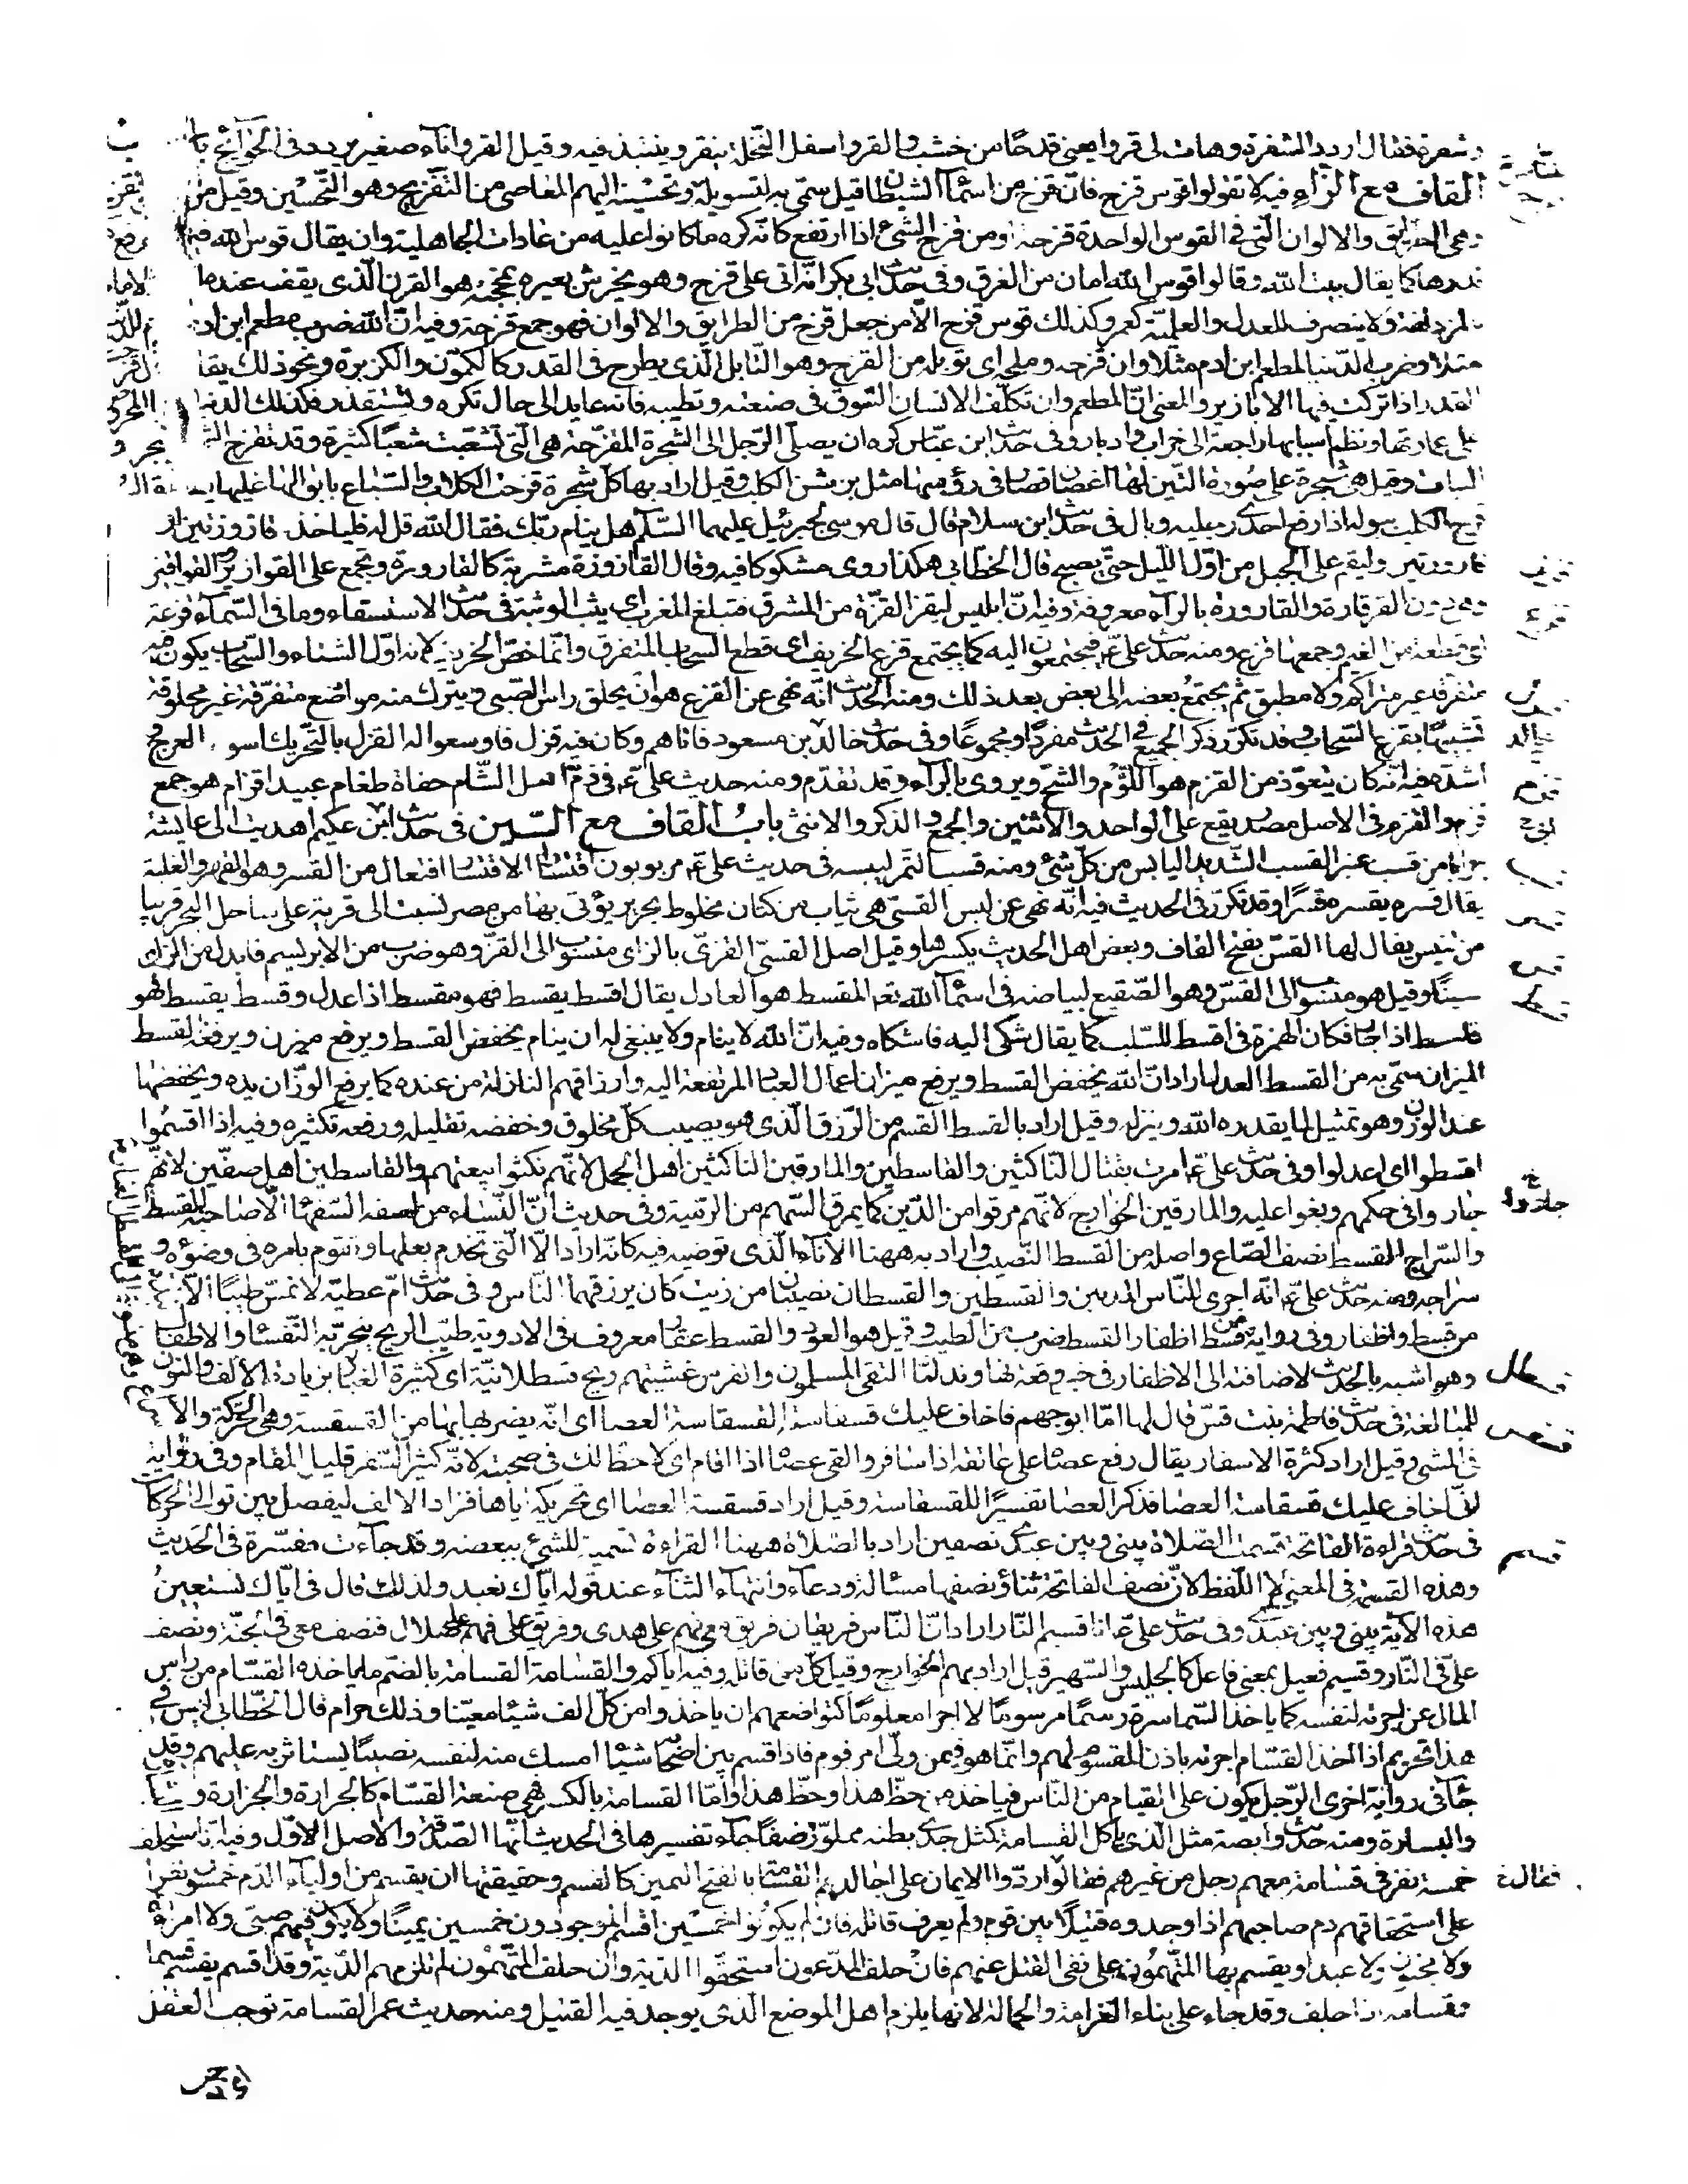 وشفرة فقال اردد الشفرة وهات لى قروا يعنى قدحا من خشب والقرو اسفل النخلة ينقر وينبذ فيه وقيل القرو اناء صغير يردد فى الحوائج باب
القاف مع الزاء فيه لا تقولوا قوس قزح فان قزح من اسماء الشيطان قيل سمى به لتسويله وتحسينه اليهم المعاصى من التقزيح وهو التحسين وقيل من القزح
وهى الطرايق والالوان التى فى القوس الواحدة قزحة او من قزح الشئ اذا ارتفع كانه كره ما كانوا عليه من عادات الجاهلية وان يقال قوس الله فيرفع
قدرها كما يقال بيت الله وقالوا قوس الله امان من الغرق وفى حديث ابى بكر انه اتى على قزح وهو يخرش بعيره بمحجنه هو القرن الذى يقف عنده الامام
بالمزدلفة ولا ينصرف للعدل والعلمية كعمر وكذلك قوس قزح الا من جعل قزح من الطرايق والالوان فهو جمع قزحة وفيه ان الله ضرب مطعم ابن ادم للدنيا
مثلا وضرب الدنيا لمطعم ابن ادم مثلا وان قزحه وملحه اى توبله من القزح وهو التابل الذى يطرح فى القدر كالكمون والكزبرة ونحو ذلك يقال قزحت
القدر اذا تركت فيها الابازير والمعنى ان المطعم وان تكلف الانسان التنوق فى صنعته وتطييبه فانه عايد الى حال تكره وتستقذر فكذلك الدنيا المحروص
على عمارتها ونظم اسبابها راجعة الى خراب وادبار وفى حديث ابن عباس كره ان يصلى الرجل الى الشجرة المقزحة هى التى تشعبت شعبا كثيرة وقد تقزح الشجر و
النبات وقيل هى شجرة على صورة التين لها اغصان قصار فى رؤسها مثل برثن الكلب وقيل اراد بها كل شجرة قزحت الكلاب والسباع بابوالها عليها يقال
قزح الكلب ببوله اذا رفع احدى رجليه وبال فى حديث ابن سلام قال قال موسى لجبرئيل عليهما السلام هل ينام ربك فقال الله قل له فلياخذ قازوزتين او
قارورتين وليقم على الجبل من اول الليل حتى يصبح قال الخطابى هكذا روى مشكوكا فيه وقال القازوزة مشربة كالقارورة وتجمع على القوازيز والقواقيز
وهى دون القرقارة والقارورة بالراء معروفة وفيه ان ابليس ليقز القزة من المشرق فتبلغ المغرب اى يثب الوثبة فى حديث الاستسقاء وما فى السماء قزعة
اى قطعة من الغيم وجمعها قزع ومنه حديث على ع فيجتمعون اليه كما يجتمع قزع الخريف اى قطع السحاب المتفرق وانما خص الخريف لانه اول الشتاء والسحاب يكون فيه
متفرقا غير متراكم ولا مطبق ثم يجتمع بعضه الى بعض بعد ذلك ومنه الحديث انه نهى عن القزع هو ان يحلق راس الصبى ويترك منه مواضع متفرقة غير محلوقة
تشبيها بقزع السحاب وقد تكرر ذكر الجميع فى الحديث مفردا ومجموعا وفى حديث خالد بن مسعود فاتاهم وكان فيه قزل فاوسعوا له القزل بالتحريك اسوء العرج و
اشده فيه انه كان يتعوذ من القزم هو اللؤم والشح ويروى بالراء وقد تقدم ومنه حديث على ع فى ذم اهل الشام حفاة طغام عبيد اقزام هو جمع
قزم والقزم فى الاصل مصدر يقع على الواحد والاثنين والجمع والذكر والانثى باب القاف مع السين فى حديث ابن عكيم اهديت الى عايشة
جرابا من قسب عنبر القسب الشديد اليابس من كل شئ ومنه قسب التمر ليبسه فى حديث على ع مربوبون اقتسارا الاقتسار افتعال من القسر وهو القهر والغلبة
يقال قسره يقسره قسرا وقد تكرر فى الحديث فيه انه نهى عن لبس القسى هى ثياب من كتان مخلوط بحرير يؤتى بها من مصر نسبت الى قرية على ساحل البحر قريبا
من تنيس يقال لها القس بفتح القاف وبعض اهل الحديث يكسرها وقيل اصل القسى القزى بالزاى منسوب الى القز وهو ضرب من الابريسم فابدل من الزاى
سينا وقيل هو منسوب الى القس وهو الصقيع لبياضه فى اسماء الله تعه المقسط هو العادل يقال اقسط يقسط فهو مقسط اذا عدل وقسط يقسط فهو
قاسط اذا جار فكان الهمزة فى اقسط للسلب كما يقال شكى اليه فاشكاه وفيه ان الله لا ينام ولا ينبغى له ان ينام يخفض القسط ويرفعه القسط
الميزان سمى به من القسط العدل اراد ان الله يخفض القسط ويرفع ميزان اعمال العباد المرتفعة اليه وارزاقهم النازلة من عنده كما يرفع الوزان يده ويخفضها
عند الوزن وهو تمثيل لما يقدره الله وينزله وقيل اراد بالقسط القسم من الرزق الذى هو يصيب كل مخلوق وخفضه تقليله ورفعه تكثيره وفيه اذا اقسموا
اقسطوا اى اعدلوا وفى حديث على ع امرت بقتال الناكثين والقاسطين والمارقين الناكثين اهل الجمل لانهم نكثوا بيعتهم والقاسطين اهل صفين لانهم
جاروا فى حكمهم وبغوا عليه والمارقين الخوارج لانهم مرقوا من الدين كما يمرق السهم من الرمية وفى حديث ان النساء من اسفه السفهاء الا صاحبة القسط
والسراج القسط نصف الصاع واصله من القسط النصيب واراد به ههنا الاناء الذى توضيه فيه كانه اراد الا التى تخدم بعلها وتقوم بامره فى وضوئه و
سراجه ومنه حديث على ع انه اجرى للناس المديين والقسطين والقسطان نصيبان من زيت كان يرزقهما الناس وفى حديث ام عطية لا تمس طيبا الا نبذة
من قسط واظفار وفى رواية من قسط اظفار القسط ضرب من الطيب وقيل هو العود والقسط عقار معروف فى الادوية طيب الريح يتبخر به النفساء والاطفال
وهو اشبه بالحديث لاضافته الى الاظفار فى خبر وقعة نهاوند لما التقى المسلمون والفرس غشيتهم ريح قسطلانية اى كثيرة الغبار بزيادة الالف والنون
للمبالغة فى حديث فاطمة بنت قيس قال لها اما ابو جهم فاخاف عليك قسقاسته القسقاسة العصا اى انه يضربها بها من القسقسة وهى الحركة والاسراع
فى المشى وقيل اراد كثرة الاسفار يقال رفع عصاه على عاتقه اذا سافر والقى عصاه اذا اقام اى لا حظ لك فى صحبته لانه كثير السفر قليل المقام وفى رواية
انى اخاف عليك قسقاسته العصا فذكر العصا تفسيرا للقسقاسة وقيل اراد قسقسة العصا اى تحريكه اياها فزاد الالف ليفصل بين توالى الحركات
فى حديث قراءة الفاتحة قسمت الصلاة بينى وبين عبدى نصفين اراد بالصلاة ههنا القراءة تسمية للشئ ببعضه وقد جاءت مفسرة فى الحديث
وهذه القسمة فى المعنى لا اللفظ لان نصف الفاتحة ثناء ونصفها مسالة ودعاء وانتهاء الثناء عند قوله اياك نعبد ولذلك قال فى اياك نستعين
هذه الآية بينى وبين عبدى وفى حديث على ع انا قسيم النار اراد ان الناس فريقان فريق معى فهم على هدى وفريق على فهم على ضلال فنصف معى فى الجنة ونصف
على فى النار وقسيم فعيل بمعنى فاعل كالجليس والسمير قيل اراد بهم الخوارج وقيل كل من قاتله وفيه اياكم والقسامة القسامة بالضم ما ياخذه القسام من راس
المال عن اجرته لنفسه كما ياخذ السماسرة رسما مرسوما لا اجرا معلوما كتواضعهم ان ياخذوا من كل الف شيئا معينا وذلك حرام قال الخطابى ليس فى
هذا تحريم اذا اخذ القسام اجرته باذن المقسوم لهم وانما هو فيمن ولى امر قوم فاذا قسم بين اصحابه شيئا امسك منه لنفسه نصيبا يستاثر به عليهم وقد
جاء فى رواية اخرى الرجل يكون على الفئام من الناس فياخذ من حظ هذا وحظ هذا واما القسامة بالكسر فهى صنعة القسام كالجزارة والجزارة و
والبسارة ومنه حديث وابصة مثل الذى ياكل القسامة كمثل جدى بطنه مملو رضفا جاء تفسيرها فى الحديث انها الصدقة والاصل الاول وفيه انه استحلف
خمسة نفر فى قسامة معهم رجل من غيرهم فقالوا ردوا الايمان على اجالدهم القسامة بالفتح اليمين كالقسم وحقيقتها ان يقسم من اولياء الدم خمسون نفرا
على استحقاقهم دم صاحبهم اذا وجدوه قتيلا بين قوم ولم يعرف قاتله فان لم يكونوا خمسين اقسم الموجودون خمسين يمينا ولا يكون فيهم صبى ولا امراة
ولا مجنون ولا عبد او يقسم بها المتهمون على نفى القتل عنهم فان حلف المدعون استحقوا الدية وان حلف المتهمون لم تلزمهم الدية وقد اقسم يقسم قسما
وقسامة اذا حلف وقد جاء على بناء الغرامة والحمالة لانها يلزم اهل الموضع الذى يوجد فيه القتيل ومنه حديث عمر القسامة توجب العقل